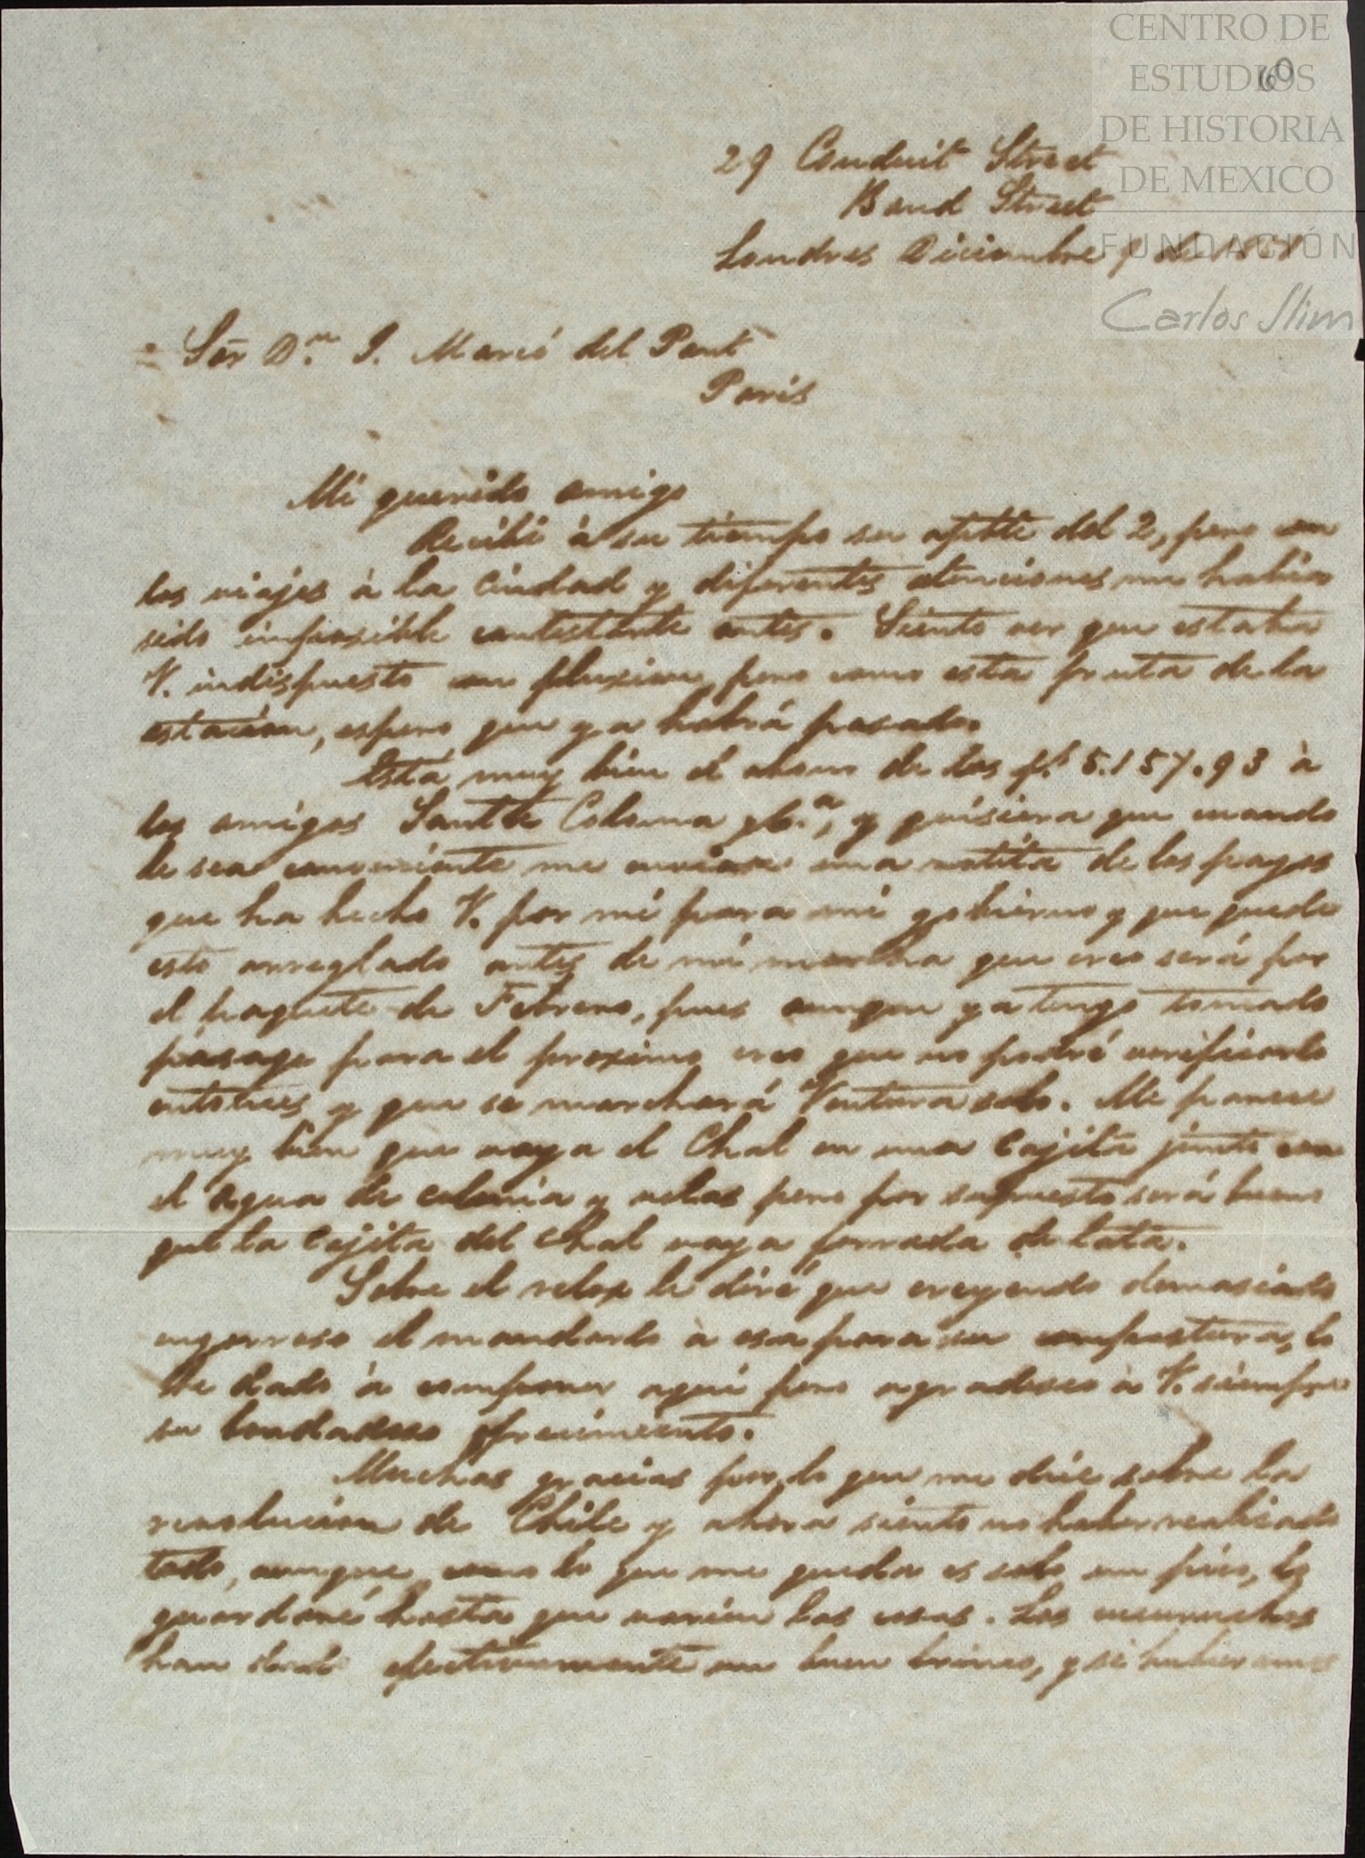 CENTRO DE
ESTUDIOS
DE HISTORIA
DE MEXICO
FUNDACIÓN
Carlos Slim
60
29 Conduit Street
Bond Street
Londres Diciembre de
Sor Dn. J. Marcó del Pont
Paris
Mi querido amigo
Recibi à su tiempo su apble del 2, pero con
los viajes à la Ciudad y diferentes atenciones me habia
sido imposible contestarle antes. Siento ver que estaba
V. indispuesto con fluxion, pero como esta fruta de la
estacion, espero que ya habrá pasado.
Está muy bien el abono de los f. 5.157.93 à
los amigos Santa Coloma y Ca., y quisiera que cuando
le sea conveniente me enviase una notita de los pagos
que ha hecho V. por mi para mi gobierno y que quede
esto arreglado antes de mi marcha que creo será por
el paquete de Febrero, pues aunque ya tengo tomado
pasage para el proximo creo que no podré verificarlo
entonces y que se marchará Ventura solo. Me parece
muy bien que vaya el Chal en una Cajita junto con
el Agua de colonia y velas pero por supuesto será bueno
que la Cajita del Chal vaya forrada de lata.
Sobre el relox le diré que creyendo demasiado
engorroso el mandarlo à esa para su compostura, lo
he dado à componer aqui pero agradesco à V. siempre
su bondadoso ofrecimiento.
Muchas gracias por lo que me dice sobre la
revolucion de Chile y ahora siento no haber realizado
todo, aunque como lo que me queda es solo un pico, lo
guardaré hasta que varien las cosas. Los
han dado efectivamente un buen brinco, y si hubieramos